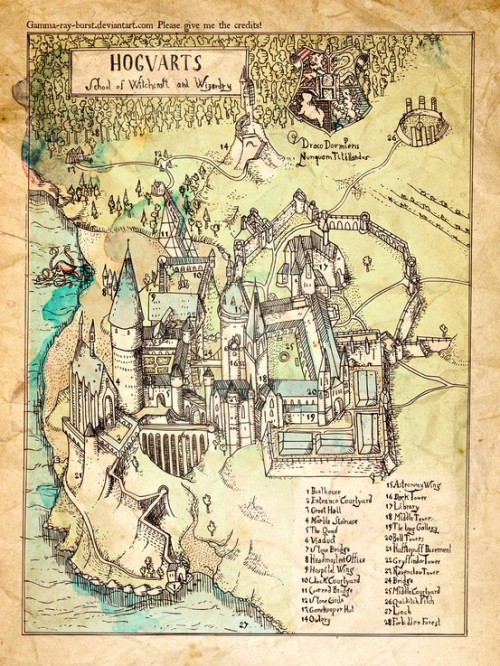 Gamma-ray-burst.deviantart.com Please give me the credits!
HOGVARTS
School of Witchcraft and Wizardry
Draco Dormiens
Nunquam Titillandus
1 Boathouse
2 Entrance Courtyard
3 Great Hall
4 Marble Staircase
5 The Quad
6 Viaduct
7 Stone Bridge
8 Headmaster Office
9 Hospital Wing
10 Clock Courtyard
11 Covered Bridge
12 Stone Circle
13 Gamekeeper Hut
14 Owlery
15 Astronomy Wing
16 Dark Tower
17 Library
18 Middle Tower
19 The Long Gallery
20 Bell Towers
21 Hufflepuff Basement
22 Gryffindor Tower
23 Ravenclaw Tower
24 Bridge
25 Middle Courtyard
26 Quidditch Pitch
27 Loch
28 Forbidden Forest